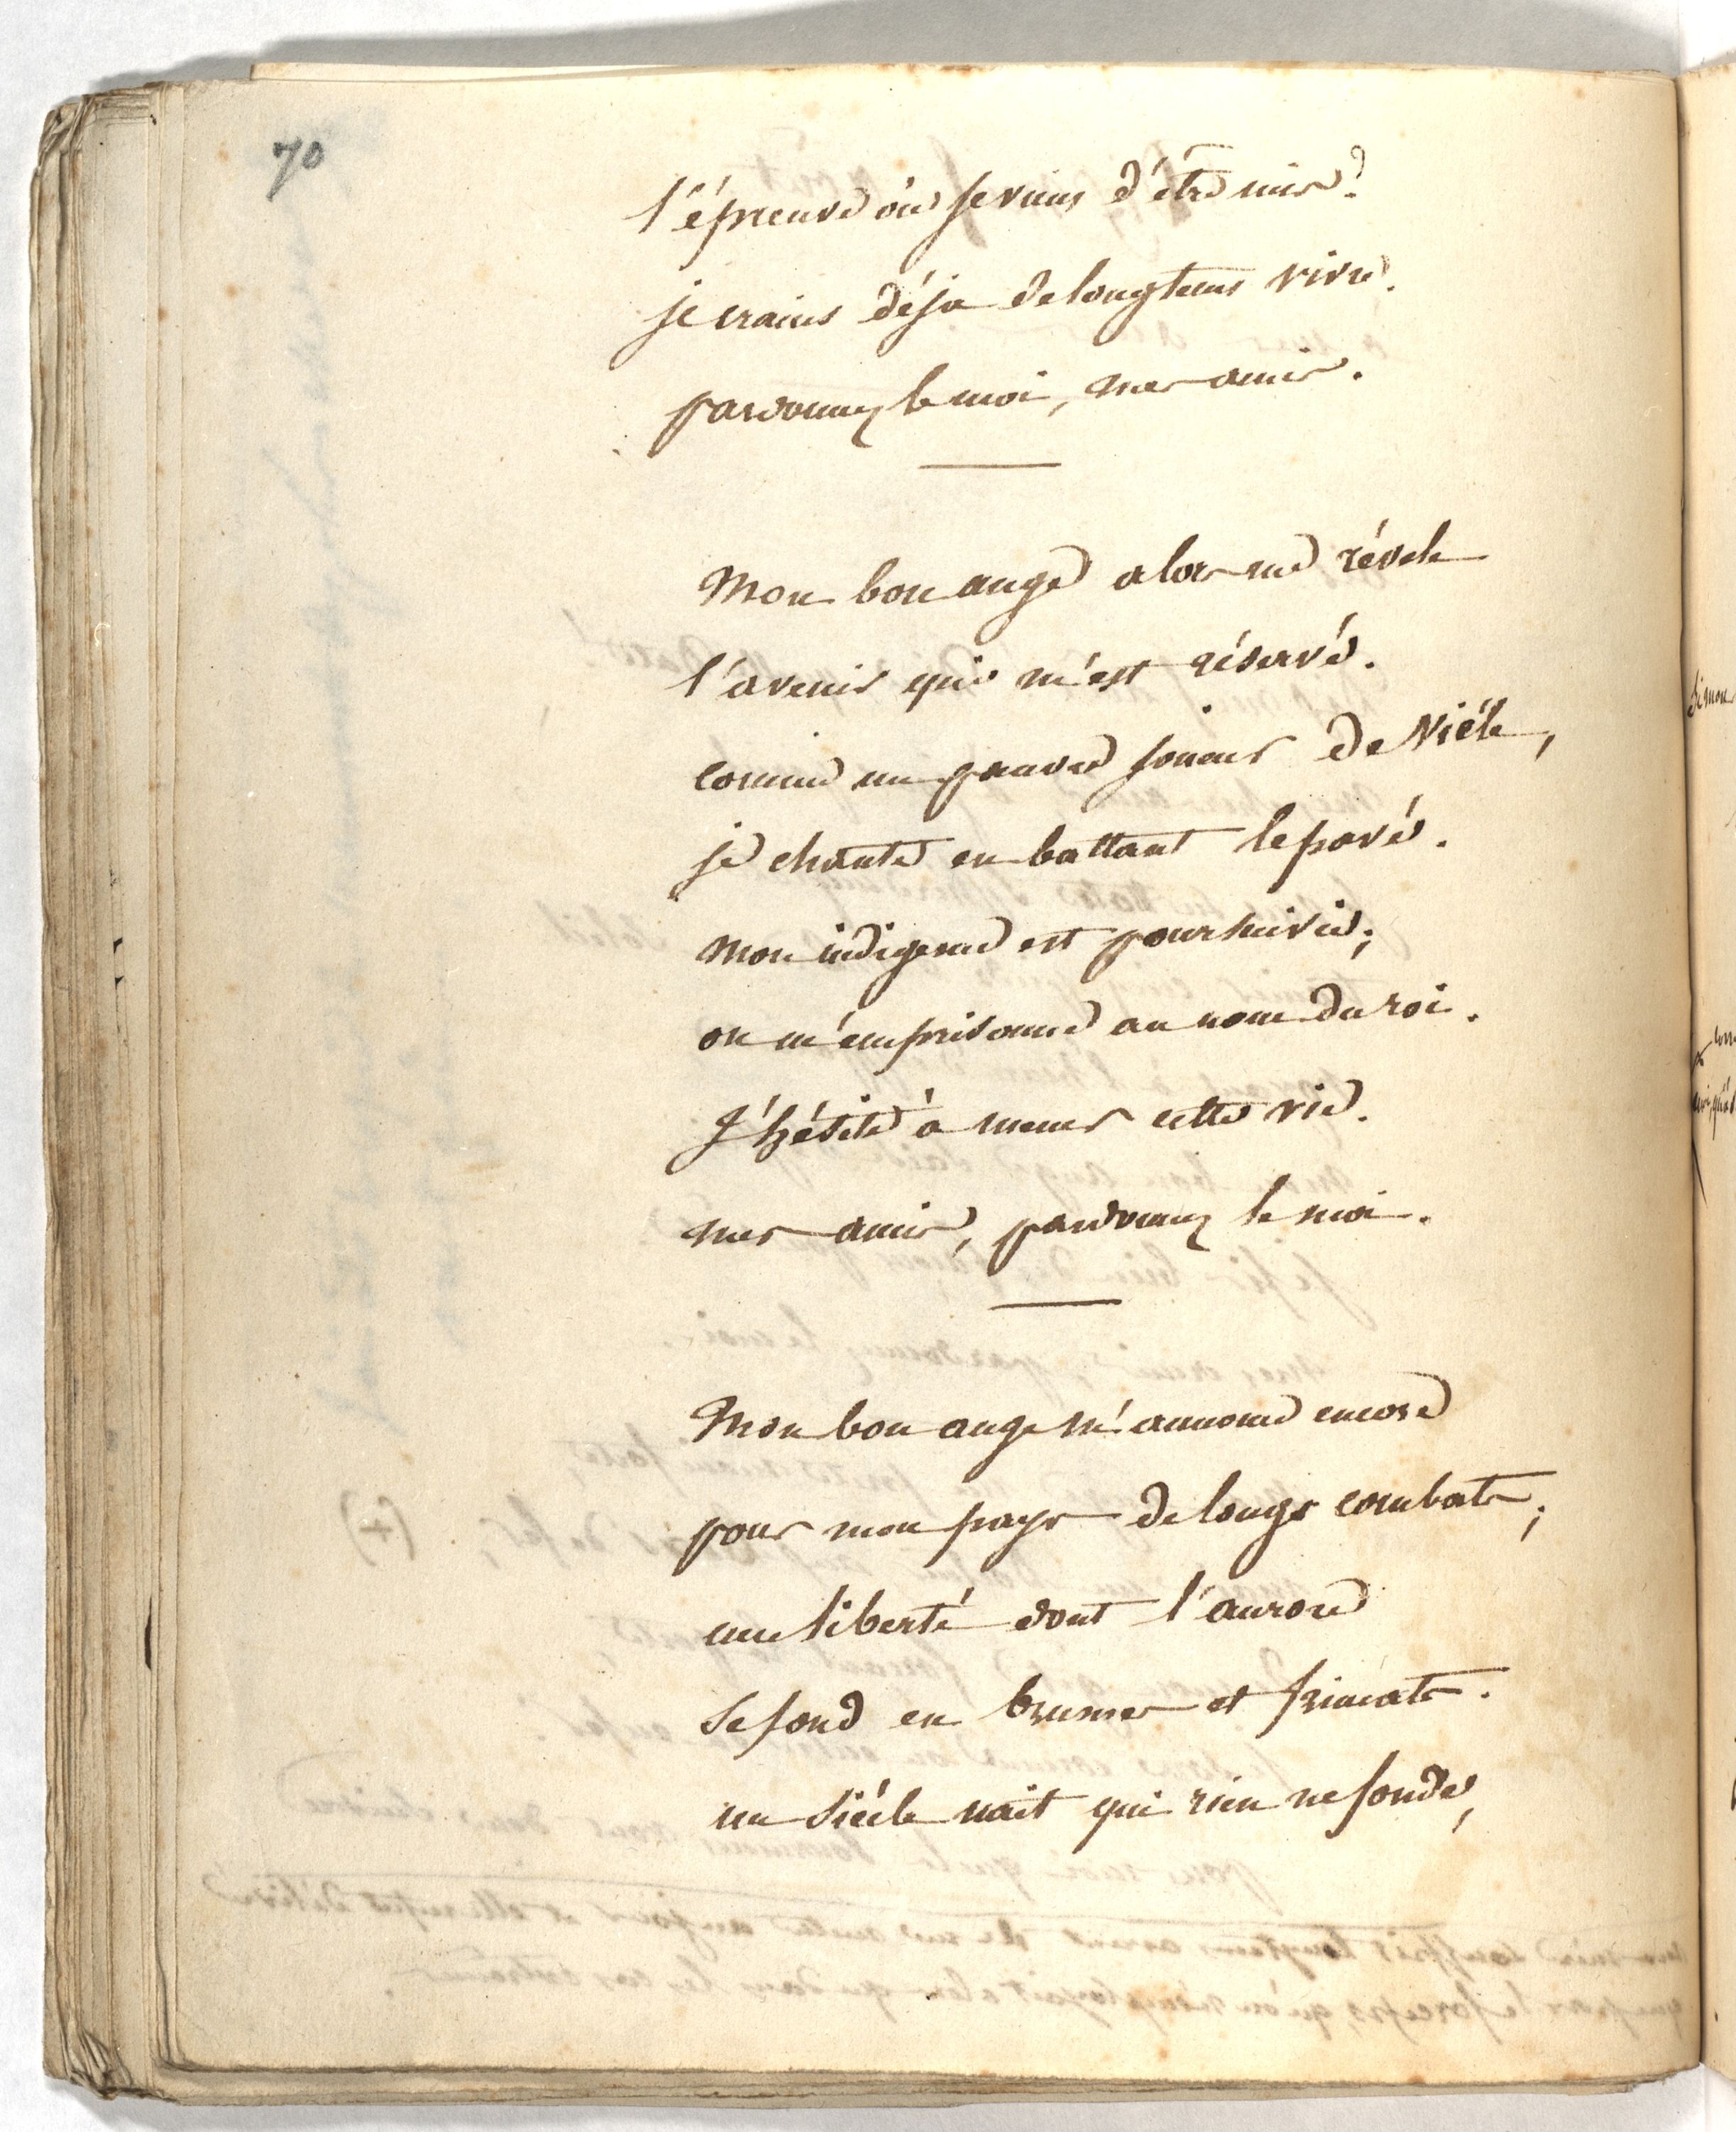 70
l'épreuve où je viens d'être mis?
je crains déja de longtems vivre.
pardonnez le moi, mes amis.
Mon bon ange alors me révele
l'avenir qui m'est réservé.
comme un pauvre joueur de Viéle,
je chante en battant le pavé.
Mon indigence est poursuivie;
on m'emprisonne au nom du roi.
J'hésite à mener cette vie.
mes amis, pardonnez le moi.
Mon bon ange m'annonce encore
pour mon pays de longs combats;
une liberté dont l'aurore
se fond en brumes et frimats.
un siécle nait qui rien ne fonde,